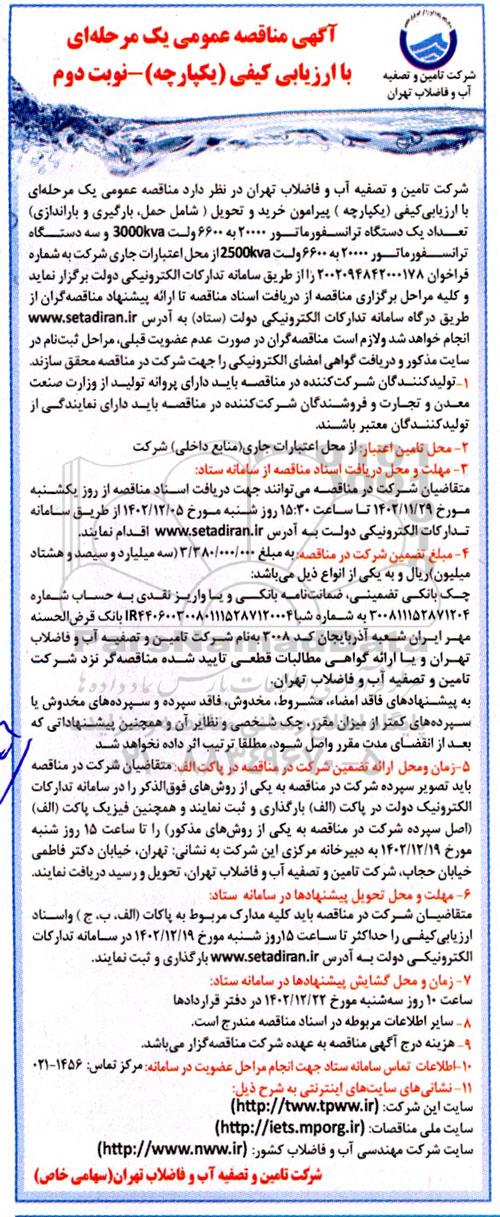 آگهی مناقصه عمومی یک مرحله‌ای
با ارزیابی کیفی (یکپارچه) –نوبت دوم
شرکت تامین و تصفیه
آب و فاضلاب تهران
شرکت تامین و تصفیه آب و فاضلاب تهران در نظر دارد مناقصه عمومی یک مرحله‌ای
با ارزیابی‌کیفی (یکپارچه ) پیرامون خرید و تحویل ( شامل حمل، بارگیری و باراندازی)
تعداد یک دستگاه ترانسفورماتور ۲۰۰۰۰ به ۶۶۰۰ ولت 3000kva و سه دستگاه
ترانسفورماتور ۲۰۰۰۰ به ۶۶۰۰ ولت 2500kva از محل اعتبارات جاری شرکت به شماره
فراخوان ۲۰۰۲۰۹۴۸۴۲۰۰۰۱۷۸ را از طریق سامانه تدارکات الکترونیکی دولت برگزار نماید
و کلیه مراحل برگزاری مناقصه از دریافت اسناد مناقصه تا ارائه پیشنهاد مناقصه‌گران از
طریق درگاه سامانه تدارکات الکترونیکی دولت (ستاد) به آدرس www.setadiran.ir
انجام خواهد شد ولازم است مناقصه‌گران در صورت عدم عضویت قبلی، مراحل ثبت‌نام در
سایت مذکور و دریافت گواهی امضای الکترونیکی را جهت شرکت در مناقصه محقق سازند.
۱-تولیدکنندگان شرکت‌کننده در مناقصه باید دارای پروانه تولید از وزارت صنعت
معدن و تجارت و فروشندگان شرکت‌کننده در مناقصه باید دارای نمایندگی از
تولیدکنندگان معتبر باشند.
۲- محل تامین اعتبار: از محل اعتبارات جاری(منابع داخلی) شرکت
۳- مهلت و محل دریافت اسناد مناقصه از سامانه ستاد:
متقاضیان شرکت در مناقصه می‌توانند جهت دریافت اسناد مناقصه از روز یکشنبه
مورخ ۱۴۰۲/۱۱/۲۹ تا ساعت ۱۵:۳۰ روز شنبه مورخ ۱۴۰۲/۱۲/۰۵ از طریق سامانه
تدارکات الکترونیکی دولت به آدرس www.setadiran.ir اقدام نمایند.
۴- مبلغ تضمین شرکت در مناقصه: به مبلغ ۳/۳۸۰/۰۰۰/۰۰۰ (سه میلیارد و سیصد و هشتاد
میلیون)ریال و به یکی از انواع ذیل می‌باشد:
چک بانکی تضمینی، ضمانت‌نامه بانکی و یا واریز نقدی به حساب شماره
۳۰۰۸۱۱۱۵۲۸۷۱۲۰۴ به شماره شبا IR۴۴۰۶۰۰۳۰۰۸۰۱۱۱۵۲۸۷۱۲۰۰۰۴ بانک قرض‌الحسنه
مهر ایران شعبه آذربایجان کد ۳۰۰۸ به‌نام شرکت تامین و تصفیه آب و فاضلاب
تهران و یا ارائه گواهی مطالبات قطعی تایید شده مناقصه‌گر نزد شرکت
تامین و تصفیه آب و فاضلاب تهران.
به پیشنهادهای فاقد امضاء، مشروط، مخدوش، فاقد سپرده و سپرده‌های مخدوش یا
سپرده‌های کمتر از میزان مقرر، چک شخصی و نظایر آن و همچنین پیشنهاداتی که
بعد از انقضای مدت مقرر واصل شود، مطلقا ترتیب اثر داده نخواهد شد.
۵-زمان ومحل ارائه تضمین شرکت در مناقصه در پاکت الف: متقاضیان شرکت در مناقصه
باید تصویر سپرده شرکت در مناقصه به یکی از روش‌های فوق‌الذکر را در سامانه تدارکات
الکترونیک دولت در پاکت (الف) بارگذاری و ثبت نمایند و همچنین فیزیک پاکت (الف)
(اصل سپرده شرکت در مناقصه به یکی از روش‌های مذکور) را تا ساعت ۱۵ روز شنبه
مورخ ۱۴۰۲/۱۲/۱۹ به دبیرخانه مرکزی این شرکت به نشانی: تهران، خیابان دکتر فاطمی
خیابان حجاب، شرکت تامین و تصفیه آب و فاضلاب تهران، تحویل و رسید دریافت نمایند.
۶- مهلت و محل تحویل پیشنهادها در سامانه ستاد:
متقاضیان شرکت در مناقصه باید کلیه مدارک مربوط به پاکات (الف، ب، ج ) واسناد
ارزیابی‌کیفی را حداکثر تا ساعت ۱۵روز شنبه مورخ ۱۴۰۲/۱۲/۱۹ در سامانه تدارکات
الکترونیکی دولت به آدرس www.setadiran.ir بارگذاری و ثبت نمایند.
۷- زمان و محل گشایش پیشنهادها در سامانه ستاد:
ساعت ۱۰ روز سه‌شنبه مورخ ۱۴۰۲/۱۲/۲۲ در دفتر قراردادها
۸- سایر اطلاعات مربوطه در اسناد مناقصه مندرج است.
۹- هزینه درج آگهی مناقصه به عهده شرکت مناقصه‌گزار می‌باشد.
۱۰-اطلاعات تماس سامانه ستاد جهت انجام مراحل عضویت در سامانه: مرکز تماس: ۱۴۵۶-۰۲۱
۱۱- نشانی‌های سایت‌های اینترنتی به شرح ذیل:
سایت این شرکت: (http://tww.tpww.ir)
سایت ملی مناقصات: (http://iets.mporg.ir)
سایت شرکت مهندسی آب و فاضلاب کشور: (http://www.nww.ir)
شرکت تامین و تصفیه آب و فاضلاب تهران(سهامی خاص)